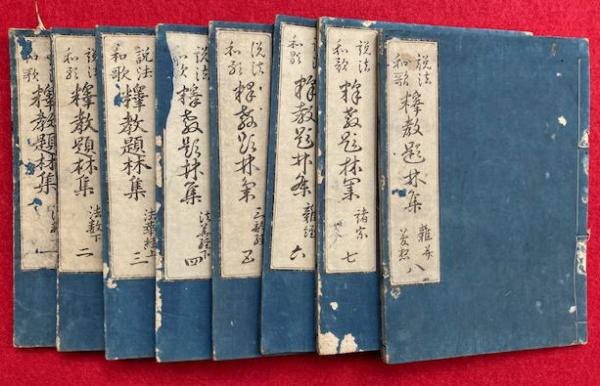 和歌
釋教題林集
一
説法
和歌
釋教題林集
法數下
二
説法
和歌
釋教題林集
法華經上
三
説法
和歌
釋教題林集
法華經下
四
説法
和歌
釋教題林集
三部経
五
和歌
釋教題林集
雜經
六
説法
和歌
釋教題林集
諸宗
七
説法
和歌
釋教題林集
雜并
八